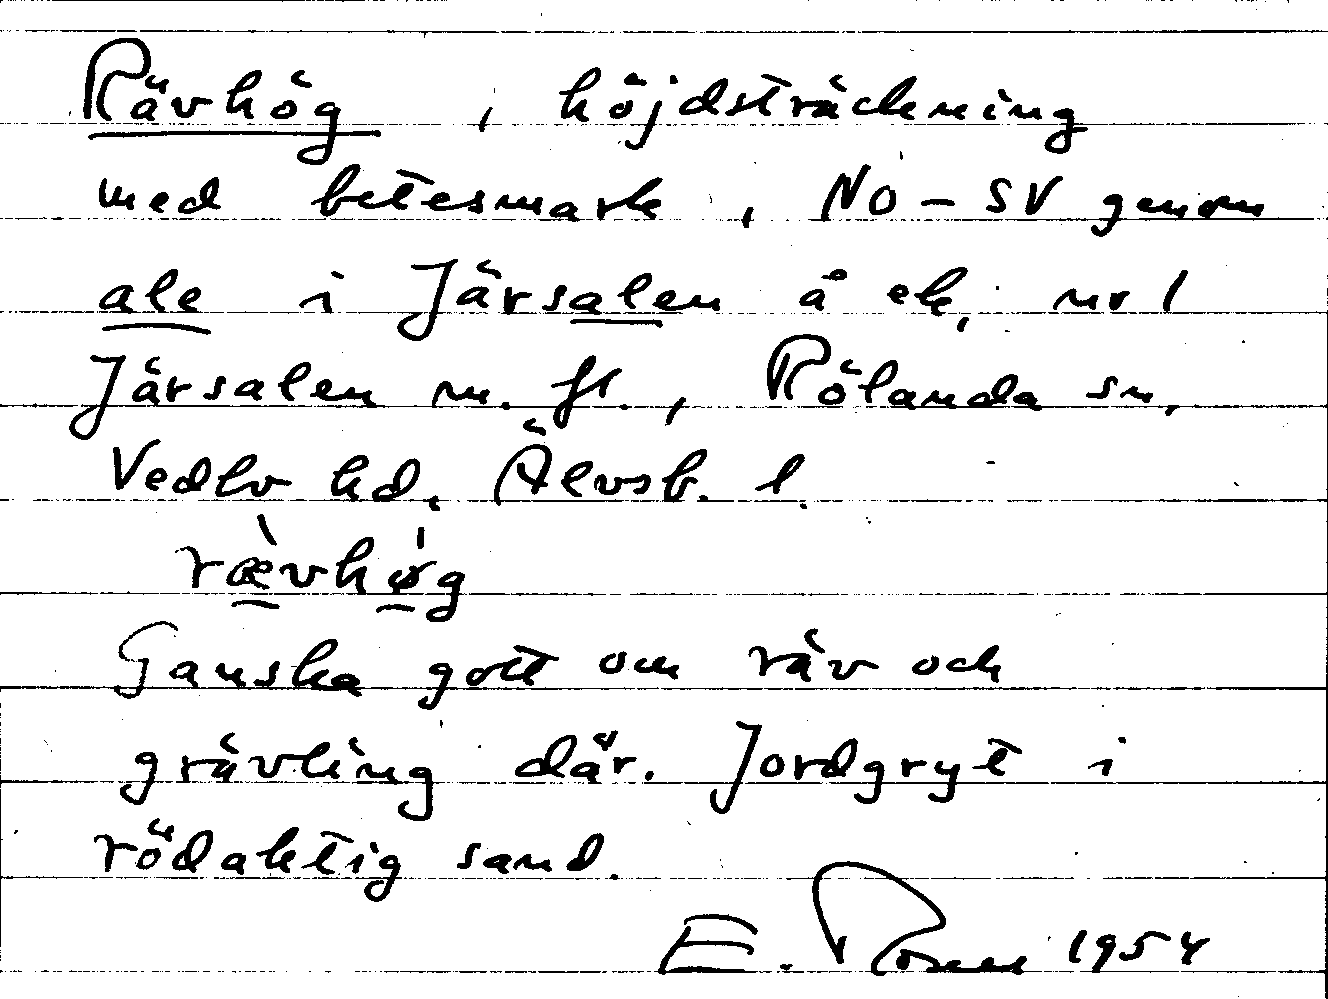 Rävhög , höjdsträckning
med betesmark , NO – SV genom
ale i Järsalen å ek. nr 1
Järsalen m. fl. , Rölanda sn,
Vedbo hd, Älvsb. l.
ræ̀vhø̀g
Ganska gott om räv och
grävling där. Jordgryt i
rödaktig sand.
E. 1954